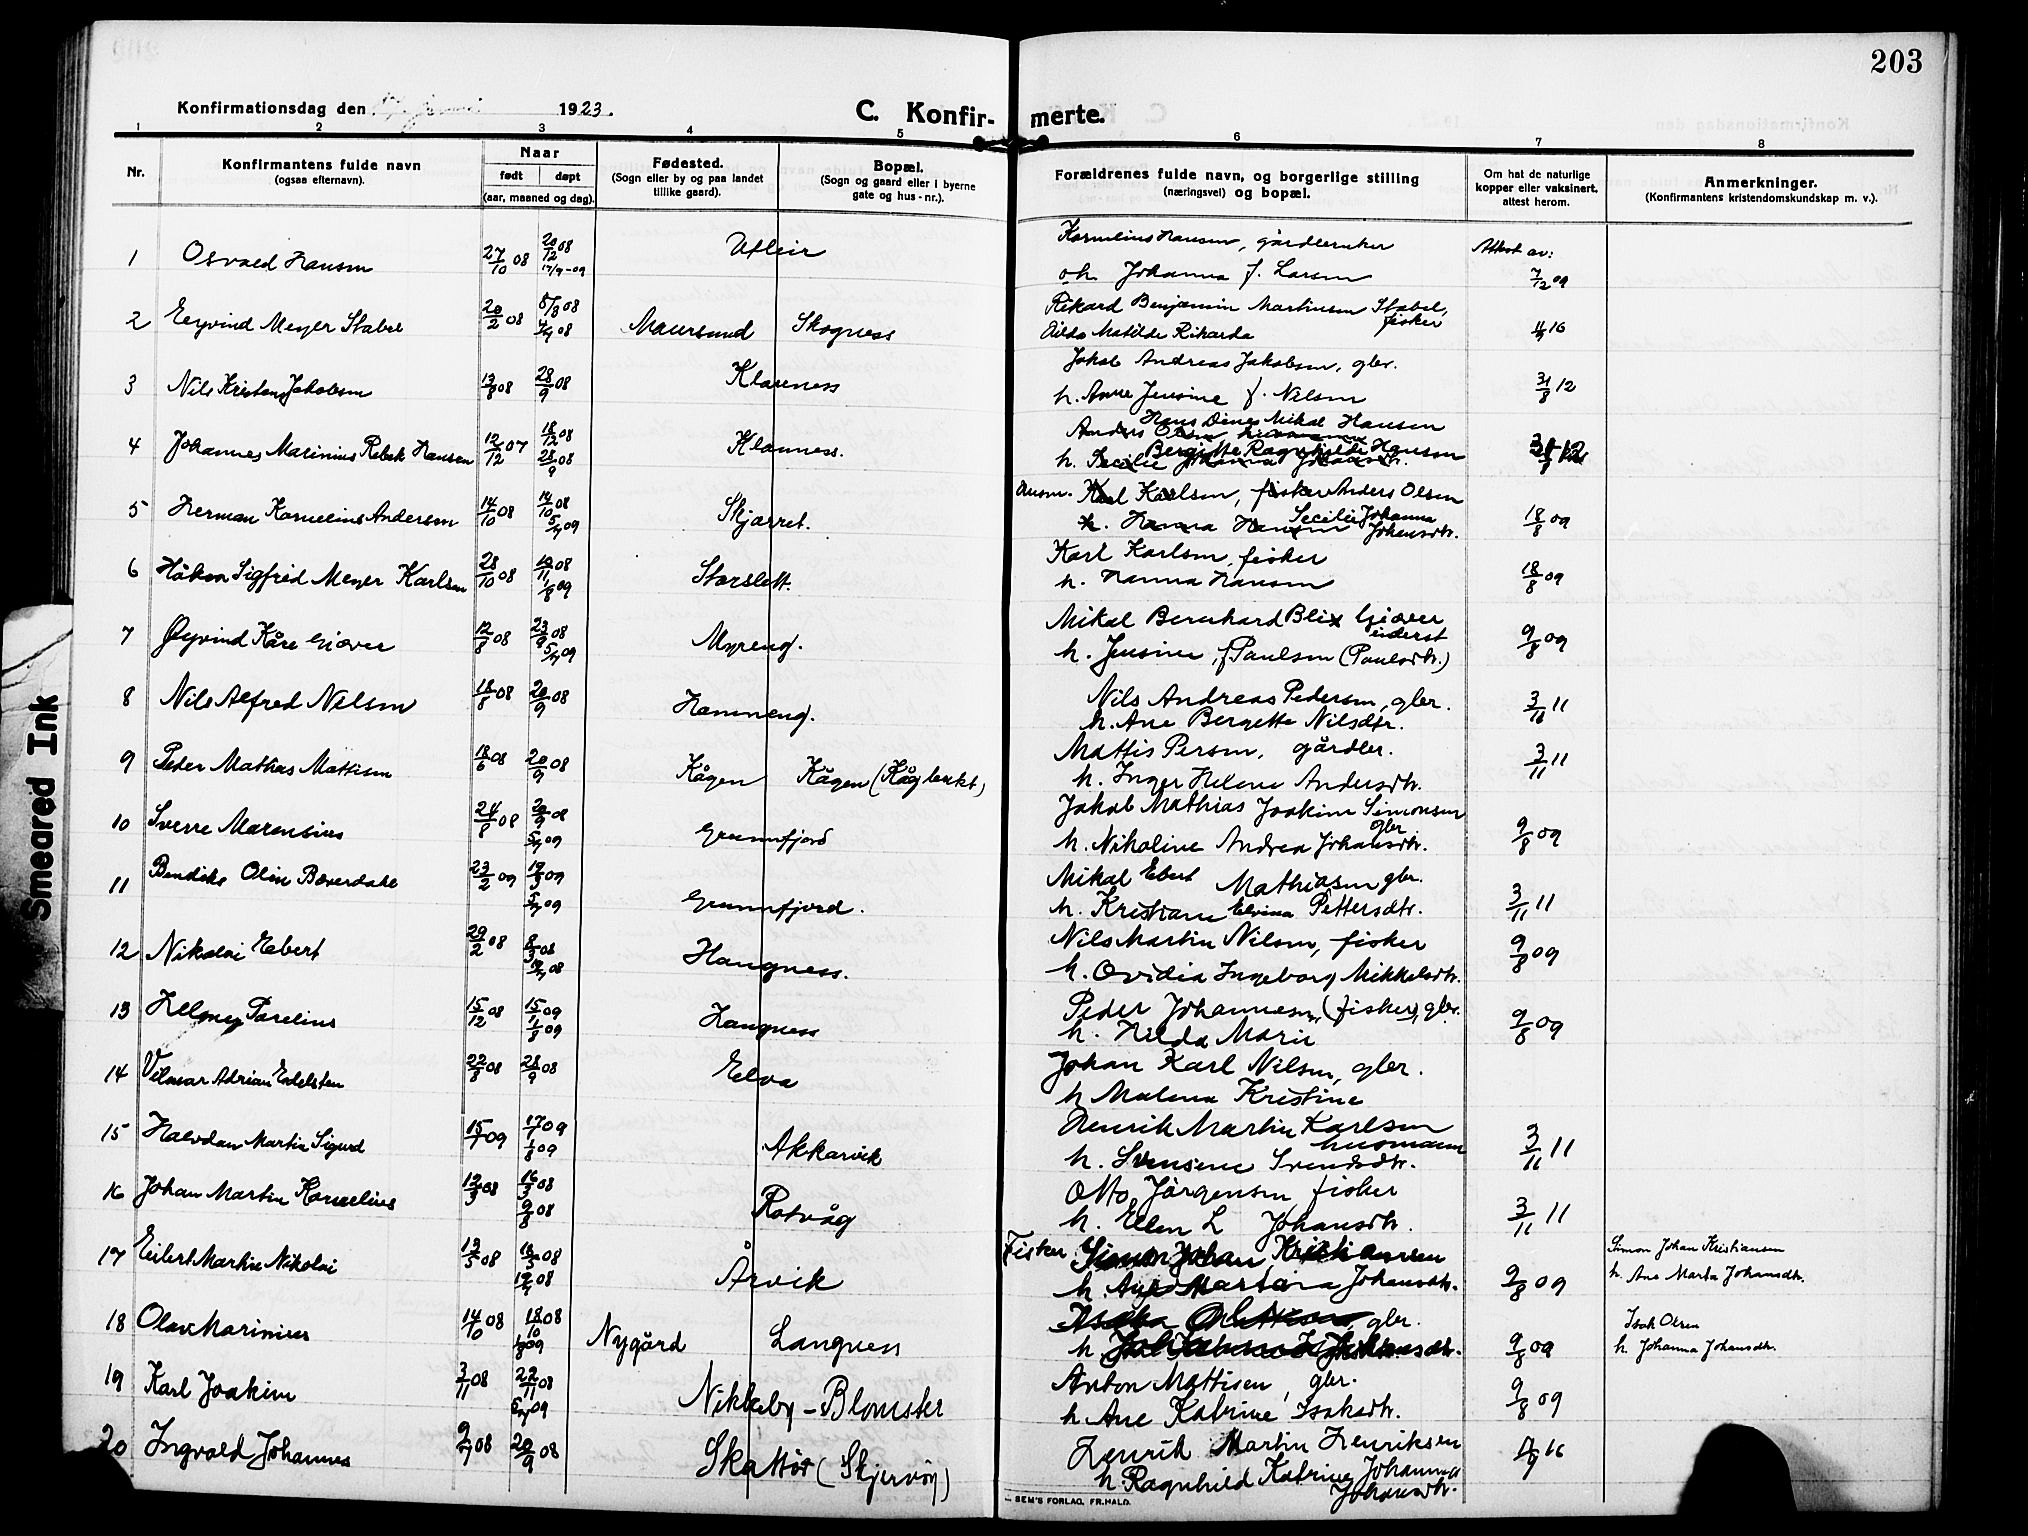 203
Konfirmationsdag den juni 1923.
C. Konfir- merte.
1 2 3 4 5 6 7 8
Nr.
Konfirmantens fulde navn
(ogsaa efternavn).
Naar
født døpt
(aar, maaned og dag).
Fødested.
(Sogn eller by og paa landet
tillike gaard).
Bopæl.
(Sogn og gaard eller i byerne
gate og hus-nr.).
Forældrenes fulde navn, og borgerlige stilling
(næringsvei) og bopæl.
Om hat de naturlige
kopper eller vaksinert,
attest herom.
Anmerkninger.
(Konfirmantens kristendomskundskap m. v.).
1 Osvald Hansen 27/10 08 20/12 08 Utleir Kornelius Hansen, gårdbruker Attest av:
17/7-09 oh. Johanna f. Larsen 7/12 09
2 Eeyvind Meyer Stabel 20/2 08 5/8 08 Maursund Skogness Rikard Benjamin Martinsen Stabel,
fisker
4/9 08 Hilda Matilde Rikarda 16
3 Nils Kristen Jakobsen 13/8 08 28/9 08 Klauness Jakob Andreas Jakobsen, gbr.
h. Anne Jensine f. Nilsen 31/8 12
4 Johannes Marinius Rebek Hansen 12/12 07 18/12 08 Klauness. Hans Diner Mikal Hansen
Anders Olsen
28/9 08 Bergitte Ragnhilde Hansen
h. Secilie Johanna Johansdtr. 12
5 Herman Kornelius Andersen 14/10 08 14/10 08 Skjærret. Husm. Karl Karlsen, fisker Anders Olsen
5/7 09 h. Hanna Hansen Secilie Johanna Johansdtr. 18/8 09
6 Håkon Sigfred Meyer Karlsen 28/10 08 10/11 08 Storslett. Karl Karlsen, fisker
1/8 09 h. Hanna Hansen 18/8 09
7 Øyvind Kåre Giæver 12/8 08 23/9 08 Myreng. Mikal Bernhard Blix Giæver
inderst
5/7 09 h. Jensine, f. Paulsen (Paulsdtr.) 9/8 09
8 Nils Alfred Nilsen 18/8 08 20/9 08 Hamneng. Nils Andreas Pedersen, gbr.
h. Ane Bergette Nilsdtr. 3/11 11
9 Peder Mathas Mattisen 18/6 08 20/9 08 Kågen Kågen (Kåglerkt) Mattis Persen, gårdbr.
h. Inger Helene Andersdtr. 3/11 11
10 Sverre Marensius 24/8 08 20/9 08 Grunnfjord Jakob Mathias Joakim Simonsen
gbr
5/7 09 h. Nikoline Andrea Johansdtr. 9/8 09
11 Bendiks Olin Bæverdahl 23/2 09 19/3 09 Grunnfjord. Mikal Ebert Mathiasen gbr.
5/7 09 h. Kristiane Elvina Pettersdtr. 3/11 11
12 Nikolai Edbert 29/2 08 8/3 08 Hangness. Nils Martin Nilsen, fisker
12/7 08 h. Ovidia Ingeborg Mikkelsdtr. 9/8 09
13 Helmer Parelius 15/12 08 15/1 09 Langness Peder Johannesen (fisker), gbr.
1/8 09 h. Hilda Marie 9/8 09
14 Vilmar Adrian Edelsten 22/8 08 28/9 08 Elva Johan Karl Nilsen, gbr.
h Malena Kristine
15 Halvdan Martin Sigurd 15/1 09 17/1 09 Akkarvik Henrik Martin Karlsen
husmann
1/8 09 h. Svensine Svendsdtr. 3/11 11
16 Johan Martin Kornelius 12/3 08 16/3 08 Rotvåg Otto Jørgensen fisker
9/8 08 h. Ellen L Johansdtr. 3/11 11
17 Eilert Martin Nikolai 13/5 08 18/5 08 Årvik Fisker Simon Johan Kristiansen Simon Johan Kristiansen
12/7 08 h. Ane Martina Johansdtr. 9/8 09 h. Ane Marta Johansdtr.
18 Olav Marinius 14/10 08 18/10 08 Nygård Langnes gbr. Isak Olsen
1/8 09 h. Johansdtr. 9/8 09 h. Johanna Johansdtr.
19 Karl Joakim 3/11 08 22/11 08 Nikkeby - Blomster Anton Mattisen, gbr.
5/7 09 h Ane Katrine Isaksdtr. 9/8 09
20 Ingvald Johannes 9/7 08 20/9 08 Skattør (Skjervøy) Henrik Martin Henriksen
h Ragnhild Katrine Johanna
Johansdtr. 16
SEM'S FORLAG, FR.HALD.
Smeared Ink